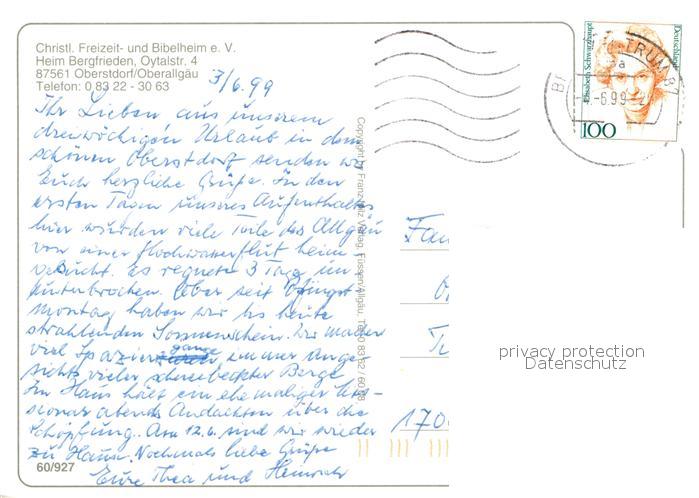 Christl. Freizeit- und Bibelheim e. V.
Heim Bergfrieden, Oytalstr. 4
87561 Oberstdorf/Oberallgäu
Telefon: 0 83 22 - 30 63
3/6.99
Ihr Lieben aus unserem
dreiwöchigen Urlaub in dem
schönen Oberstdorf senden wir
Euch herzliche Grüße. In den
ersten Tagen unseres Aufenthaltes
hier wurden viele Teile des Allgäu
von einer Hochwasserflut heim-
gesucht. Es regnete 3 Tage un-
unterbrochen. Aber seit Pfingst-
montag haben wir bis heute
strahlenden Sonnenschein. Wir machen
viel Spaziergänge immer ange-
sichts vieler schneebedeckter Berge
Im Haus hält ein ehemaliger Mis-
sionar abends Andachten über die
Schöpfung. Am 12.6. sind wir wieder
zu Hause. Nochmals liebe Grüße
Eure Thea und Heinrich
60/927
Copyright by Franz Milz Verlag, Füssen/Allgäu, Tel. 0 83 62 / 60 89
Deutschland
Elisabeth Schwarzhaupt
100
Fam
170
privacy protection
Datenschutz